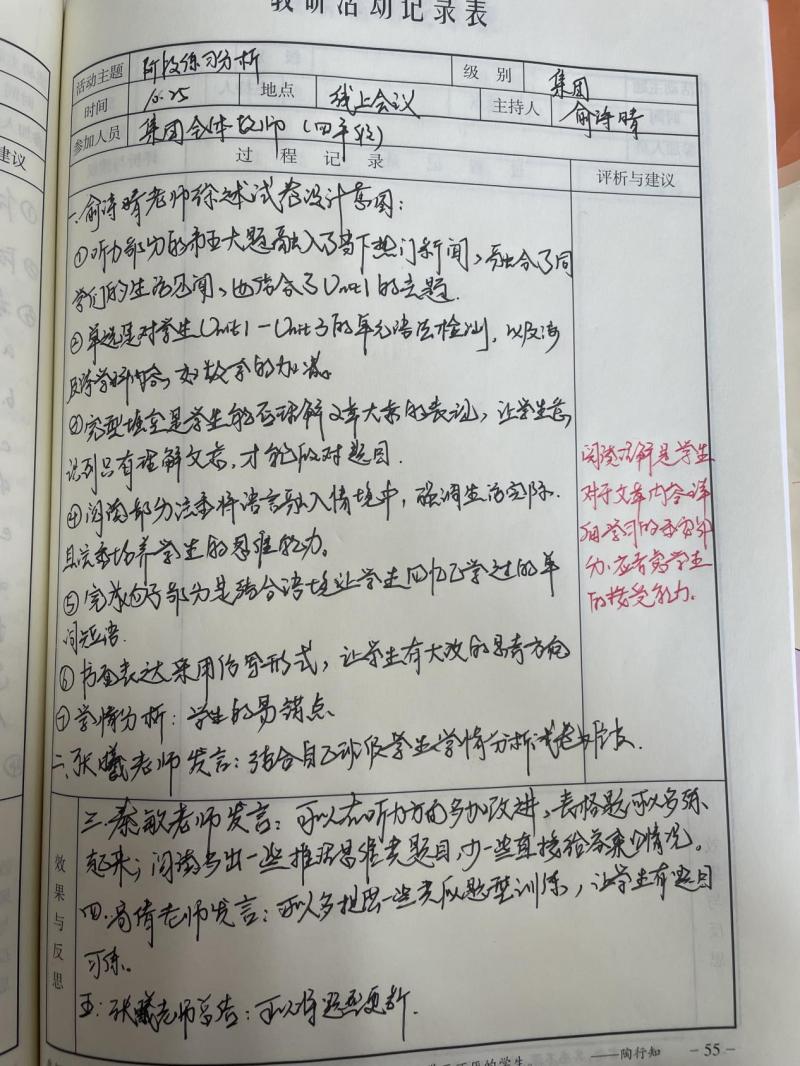 教研活动记录表
活动主题 阶段练习分析 级别 集团
时间 10.25 地点 线上会议 主持人 俞诗晴
参加人员 集团全体教师(四年级)
过程记录
评析与建议
一、俞诗晴老师综述试卷设计意图:
①听力部分的第五大题融入了当下热门新闻,融合了同
学们的生活见闻,也结合了Unit1的主题.
②单选是对学生Unit1-Unit3的单元语法检测,以及涉
及跨学科内容,如数学的加减。
③完型填空是学生能否理解文章大意的表现,让学生意
识到只有理解文意,才能做对题目.
④阅读部分注重将语言融入情境中,强调生活实际.
且注重培养学生的思维能力。
⑤完成句子部分是结合语境让学生回忆已学过的单
词短语.
⑥书面表达采用仿写形式,让学生有大致的思考方向
⑦学情分析:学生的易错点.
二、张曦老师发言:结合自己班级学生学情分析试卷
阅读理解是学生
对于文章内容详
细学习的重要部
分,应考虑学生
的接受能力.
效果与反思
三.秦敏老师发言:可以在听力方面多加改进,表格题可以多练
起来;阅读多出一些推理思维类题目,少一些直接给答案的情况。
四.冯倩老师发言:可以多出一些类似题型训练,让学生有题目
可练。
五:张曦老师总结:可以将题型更新.
的学生。 ——陶行知 - 55 -
建议